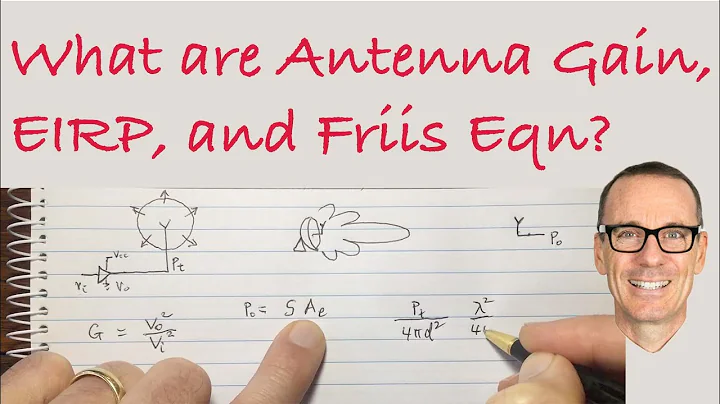 What are Antenna Gain,
EIRP, and Friis Eqn?
Vcc
Vi
Vo
Pt
Po
G = Vo²/Vi²
Po = S Ae
Pt/4πd² λ²/4